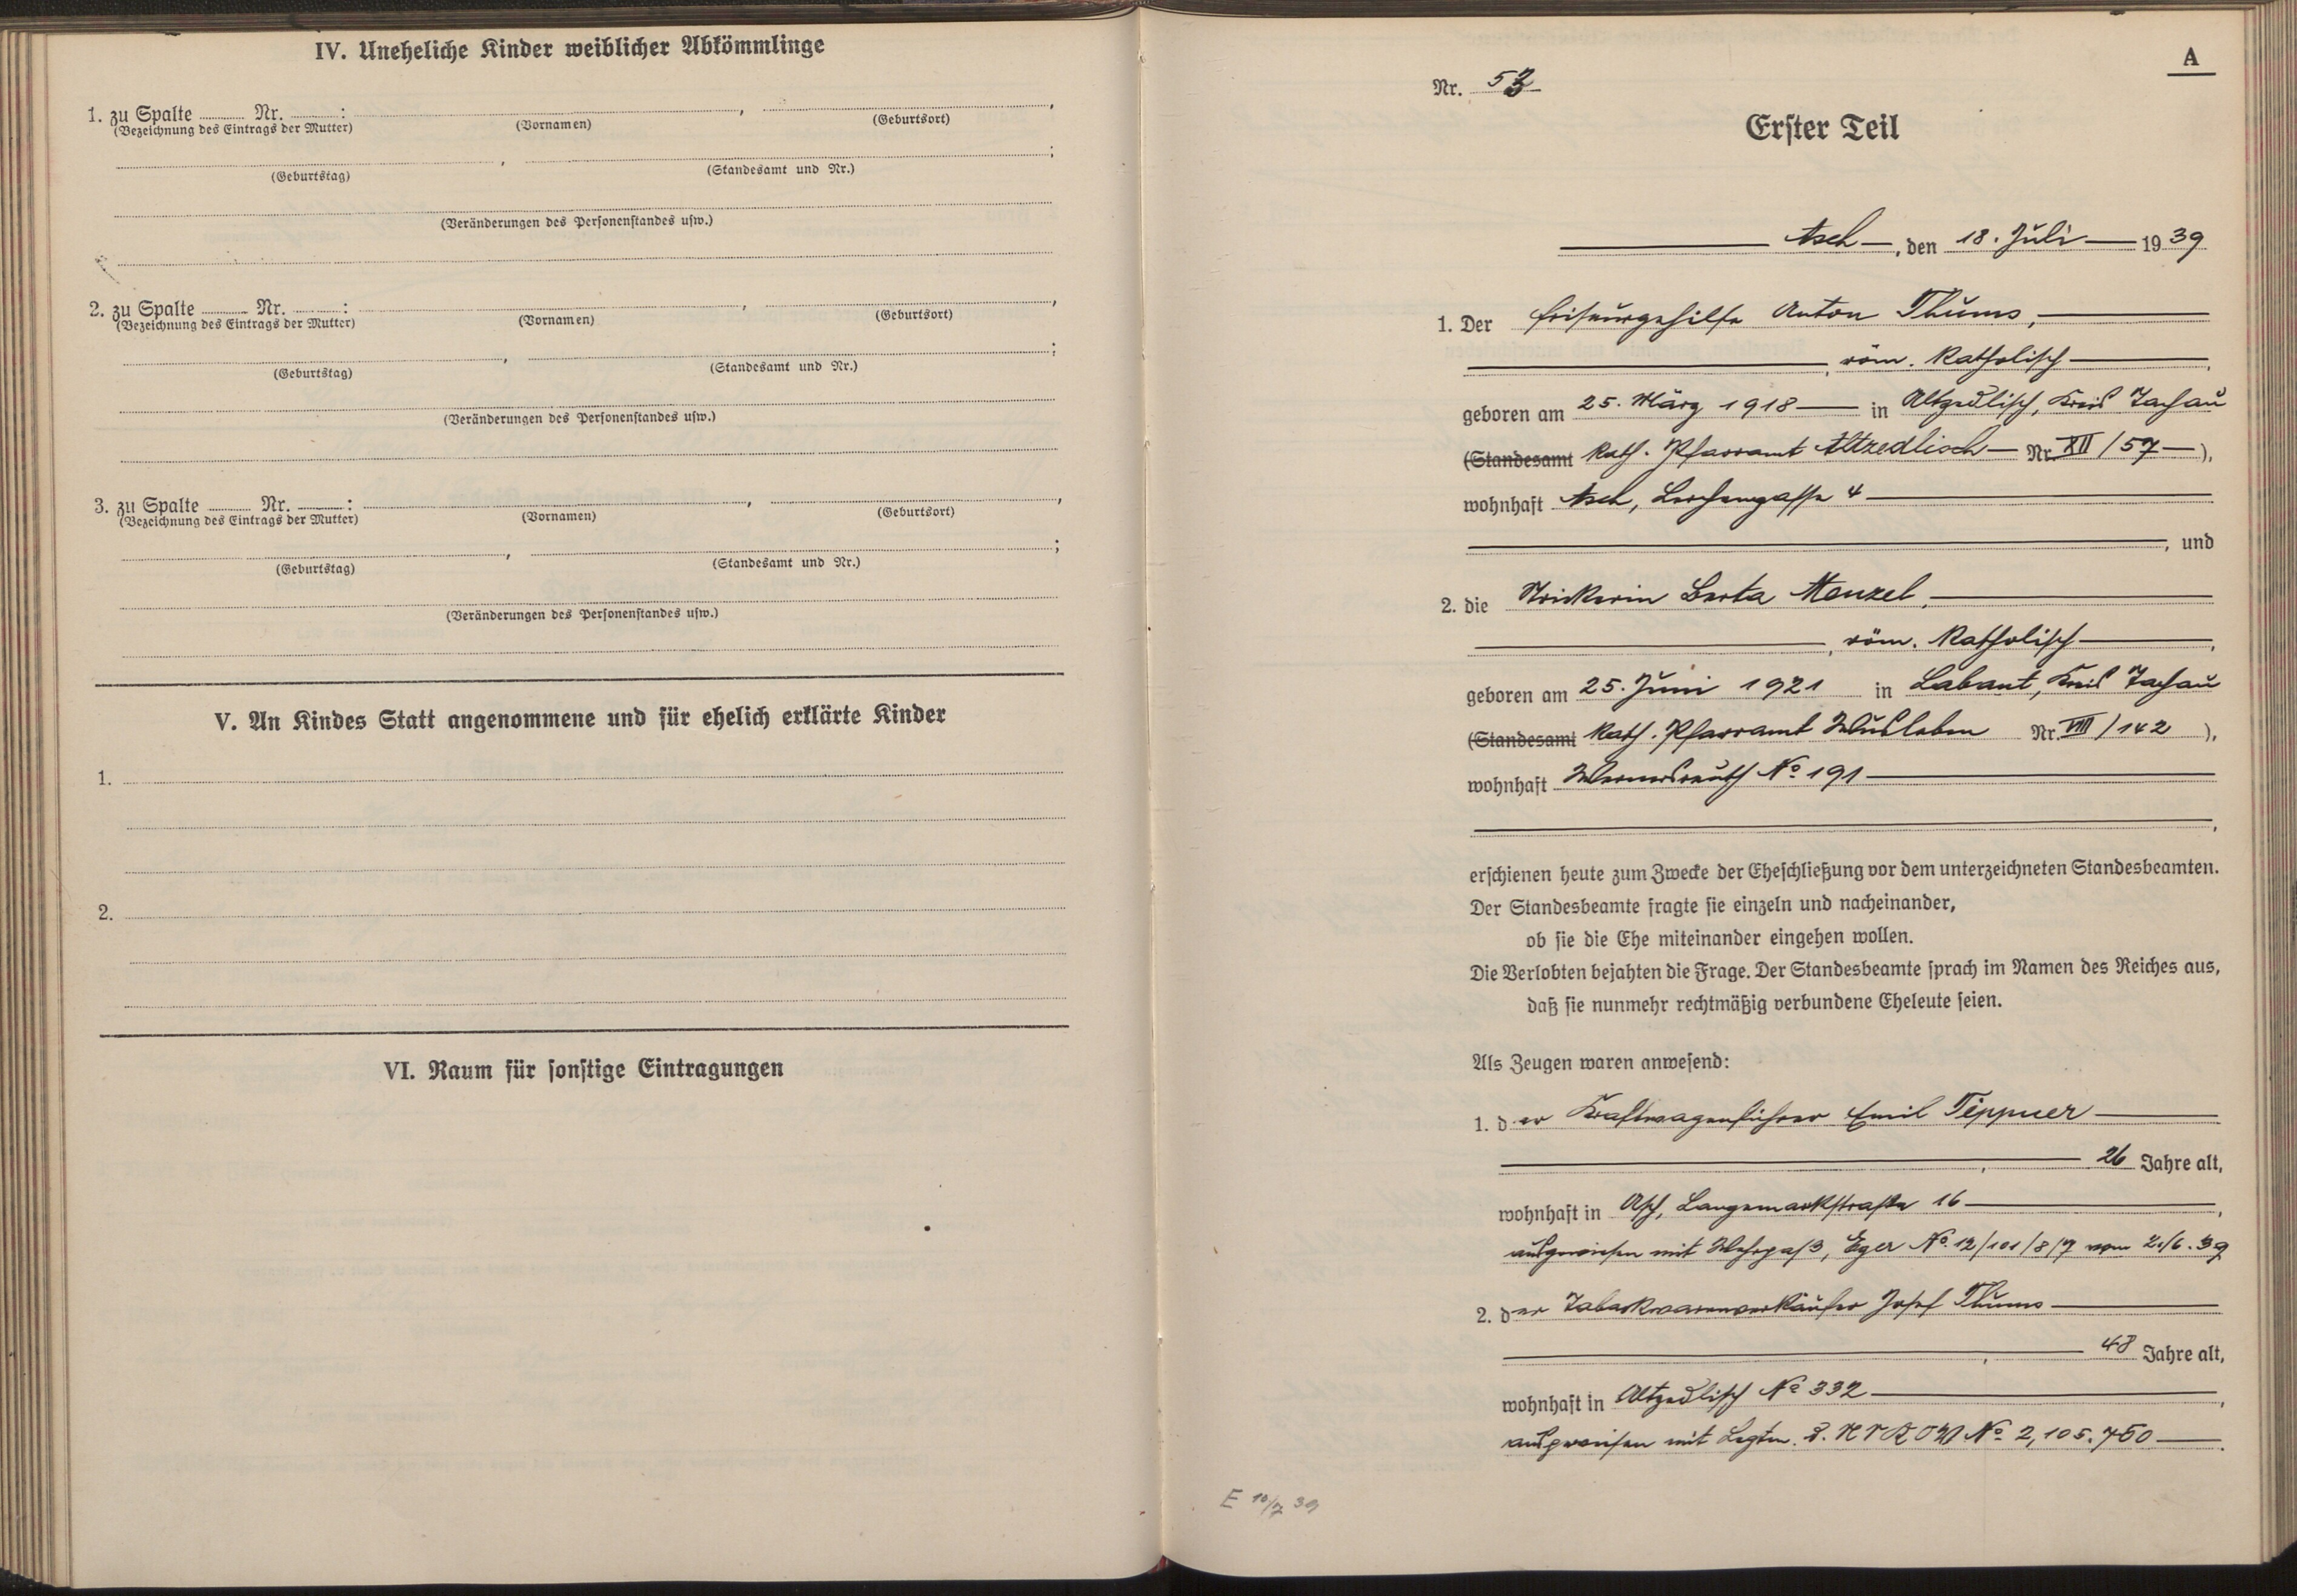 IV. Uneheliche Kinder weiblicher Abkömmlinge
1. zu Spalte ........ Nr. ........:
(Bezeichnung des Eintrags der Mutter) (Vornamen) , (Geburtsort) ,
, ;
(Geburtstag) (Standesamt und Nr.)
(Veränderungen des Personenstandes usw.)
2. zu Spalte ........ Nr. ........:
(Bezeichnung des Eintrags der Mutter) (Vornamen) , (Geburtsort) ,
, ;
(Geburtstag) (Standesamt und Nr.)
(Veränderungen des Personenstandes usw.)
3. zu Spalte ........ Nr. ........:
(Bezeichnung des Eintrags der Mutter) (Vornamen) , (Geburtsort) ,
, ;
(Geburtstag) (Standesamt und Nr.)
(Veränderungen des Personenstandes usw.)
V. An Kindes Statt angenommene und für ehelich erklärte Kinder
1.
2.
VI. Raum für sonstige Eintragungen
A
Nr. 53
Erster Teil
Asch, den 18. Juli 1939
1. Der Friseurgehilfe Anton Thums,
, röm. katholisch,
geboren am 25. März 1918 in Altzedlisch, Kreis Tachau
(Standesamt Kath. Pfarramt Altzedlisch Nr. XII/57),
wohnhaft Asch, Lerchengasse 4
, und
2. die Strickerin Berta Menzel,
, röm. katholisch,
geboren am 25. Juni 1921 in Labant, Kreis Tachau
(Standesamt Kath. Pfarramt Wusleben Nr. VIII/142),
wohnhaft Wernersreuth No 191
,
erschienen heute zum Zwecke der Eheschließung vor dem unterzeichneten Standesbeamten.
Der Standesbeamte fragte sie einzeln und nacheinander,
ob sie die Ehe miteinander eingehen wollen.
Die Verlobten bejahten die Frage. Der Standesbeamte sprach im Namen des Reiches aus,
daß sie nunmehr rechtmäßig verbundene Eheleute seien.
Als Zeugen waren anwesend:
1. der Kraftwagenführer Emil Tippner
, 26 Jahre alt,
wohnhaft in Asch, Langemarkstraße 16,
ausgewiesen mit Wehrpaß, Eger No. 12/101/8/7 vom 2./6.39
2. der Tabakwarenverkäufer Josef Thums
, 48 Jahre alt,
wohnhaft in Altzedlisch No 332,
ausgewiesen mit Legtm. d. No 2,105.750.
E 10/7 39